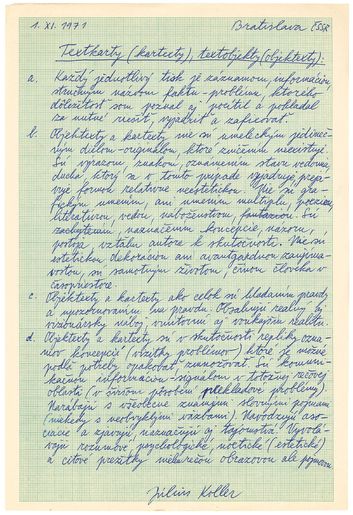 1. XI. 1971 Bratislava ČSSR
Textkarty (kartexty), textobjekty (objektexty):
a. Každý jednotlivý tisk je záznamom, informáciou,
stručným názvom faktu - problému, ktorého
dôležitosť som poznal aj pocítil a pokladal
za nutné riešiť, vyjadriť a zafixovať.
b. Objektexty a kartexty nie sú umeleckým jedineč-
ným dielom - originálom, ktoré zničením neexistuje.
Sú výrazom, znakom, oznámením stavu vedomia,
ducha, ktorý sa v tomto prípade vyjadruje, preja-
vuje formou relatívne neestetickou. Nie sú gra-
fickým umením, ani umením multiplu, poéziou,
literatúrou, vedou, náboženstvom, fantáziou. Sú
zachytením, naznačením koncepcie, názoru,
postoja, vzťahu autora k skutočnosti. Nie sú
estetickou dekoráciou ani avantgardnou zaujíma-
vosťou, sú samotným životom / činom človeka v
časopriestore.
c. Objektexty a kartexty ako celok sú hľadaním pravdy
a upozorňovaním na pravdu. Obsahujú reálny aj
vizionársky náboj, vnútornú aj vonkajšiu realitu.
d. Objektexty a kartexty sú v skutočnosti repliky ozná-
mov koncepcií (všetky problémov) ktoré je možné
podľa potreby opakovať, zmnožovať. Sú komuni-
kačnou informáciou - signálom v totožnej rečovej
oblasti (v širšom pôsobení preklenové problémy).
Narábajú s všeobecne známymi slovnými pojmami
(niekedy s neobvyklými väzbami). Navodzujú aso-
ciácie a zjavujú, naznačujú aj tajomstvá. Vyvolá-
vajú rozumové, psychologické, noetické (estetické)
a citové prežitky nielen rečou obrazovou ale pojmovou
Július Koller